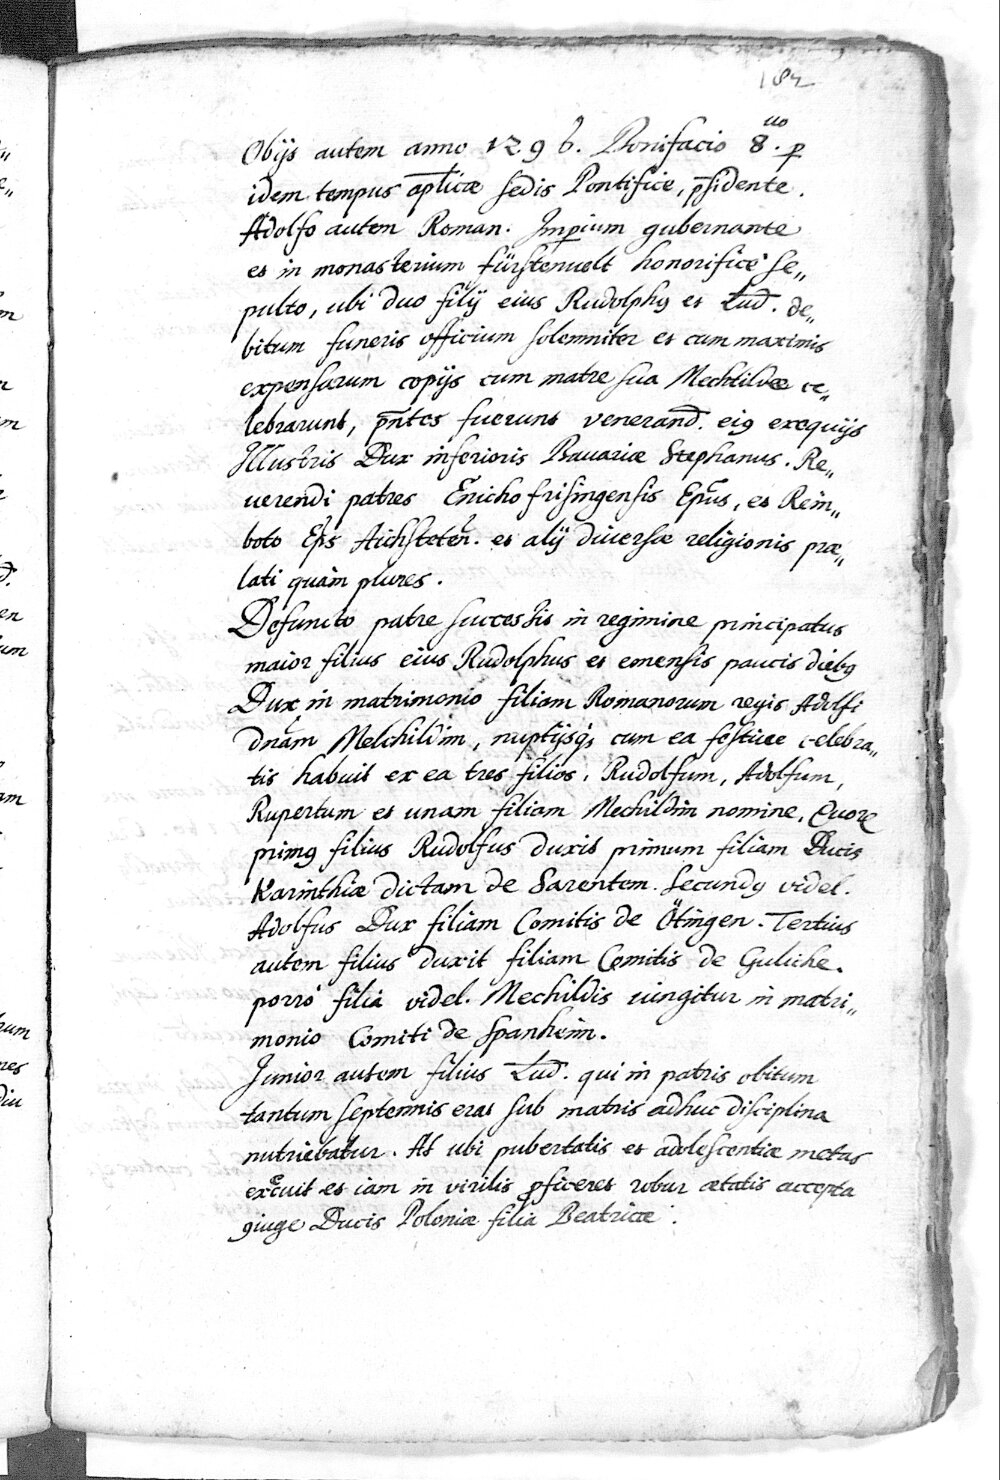 182
Obijs autem anno 1296. Bonifacio 8.uo p
idem tempus aplicæ sedis Pontifice, p̄sidente.
Adolfo autem Roman. Imperium gubernante
et in monasterium fürstenuelt honorificè se„
pulto, ubi duo filij eius Rudolphꝰ et Lud. de„
bitum funeris officium solemniter et cum maximis
expensarum copijs cum matre sua Mechtildæ ce„
lebrarunt, pn̄tes fuerunt venerand. eiꝰ exequijs
Illustris Dux inferioris Bauariæ Stephanus. Re„
uerendi patres Enicho frisingensis Epus, et Reim„
boto Eps Aichsteten. et alij diuersæ religionis præ„
lati quàm plures.
Defuncto patre successit in regimine principatus
maior filius eius Rudolphus et emensis paucis diebꝰ
Dux in matrimonio filiam Romanorum regis Adolfi
dnam Melchildim, nuptijsqꝫ cum ea festiue celebra„
tis habuit ex ea tres filios, Rudolfum, Adolfum,
Rupertum et unam filiam Mechildim nomine, Quore
primꝰ filius Rudolfus duxit primum filiam Ducis
Karinthiæ dictam de Sarentem. Secundꝰ videl.
Adolfus Dux filiam Comitis de Ötingen. Tertius
autem filius duxit filiam Comitis de Guliche.
porrò filia videl. Mechildis iungitur in matri„
monio Comiti de Spanheim.
Junior autem filius Lud. qui in patris obitum
tantum septennis erat sub matris adhuc disciplina
nutriebatur. At ubi pubertatis et adolescentiæ metas
excēuit et iam in virilis ꝓficeret robur ætatis accepta
ꝯiuge Ducis Poloniæ filia Beatricæ.